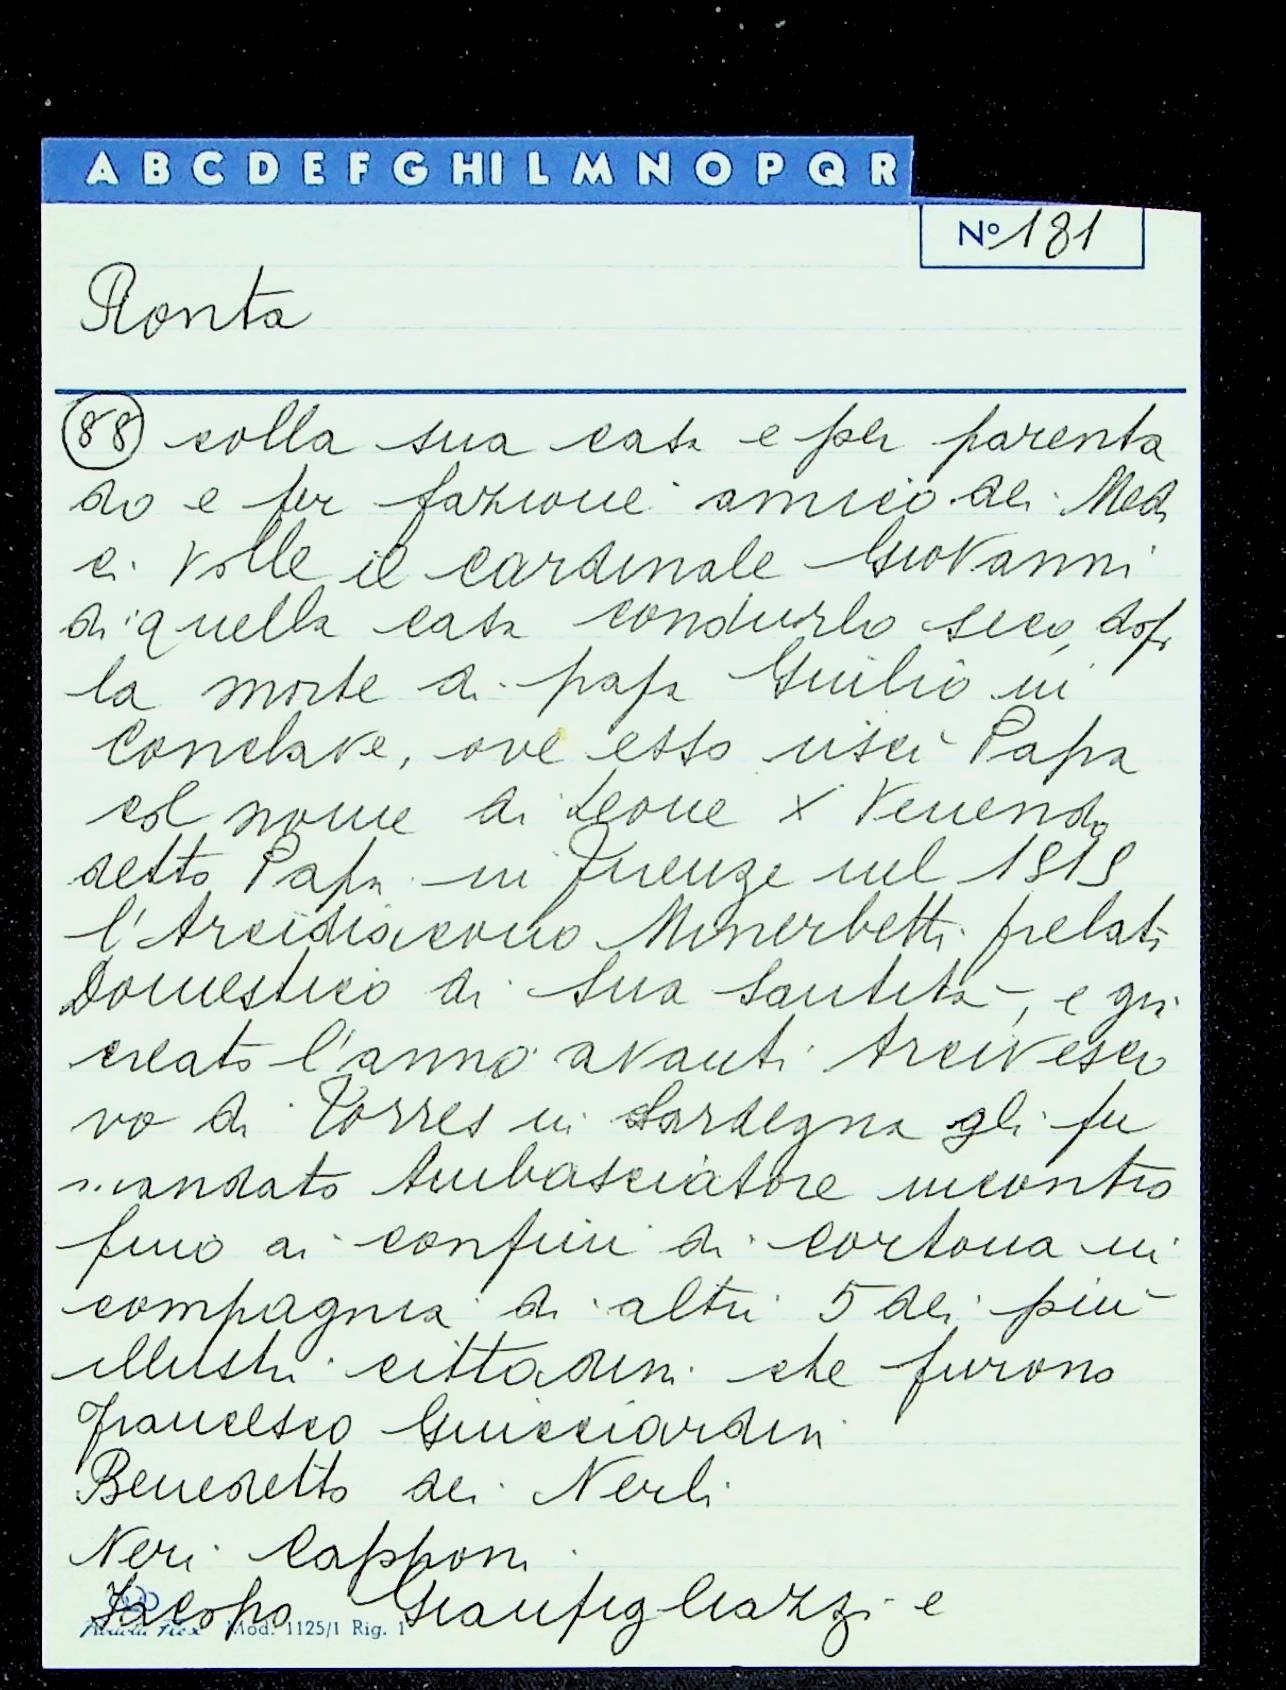 A B C D E F G H I L M N O P Q R
Nº 181
Ronta
88 colla sua casa e per parenta
do e per fazione amico dei Med
ci volle il cardinale Giovanni
di quella casa condurlo seco, dopo
la morte di papa Giulio in
Conclave, ove esso uscì Papa
col nome di Leone X Venendo
detto Papa in Firenze nel 1515
l'Arcidiacono Minerbetti prelato
Domestico di Sua Santità, e già
creato l'anno avanti Arcivesco
vo di Torres in Sardegna gli fu
mandato Ambasciatore incontro
fino ai confini di Cortona in
compagnia di altri 5 dei più
illustri cittadini che furono
Francesco Guicciardini
Benedetto dei Nerli
Neri Capponi
Jacopo Gianfigliazzi e
Mod. 1125/1 Rig. 1